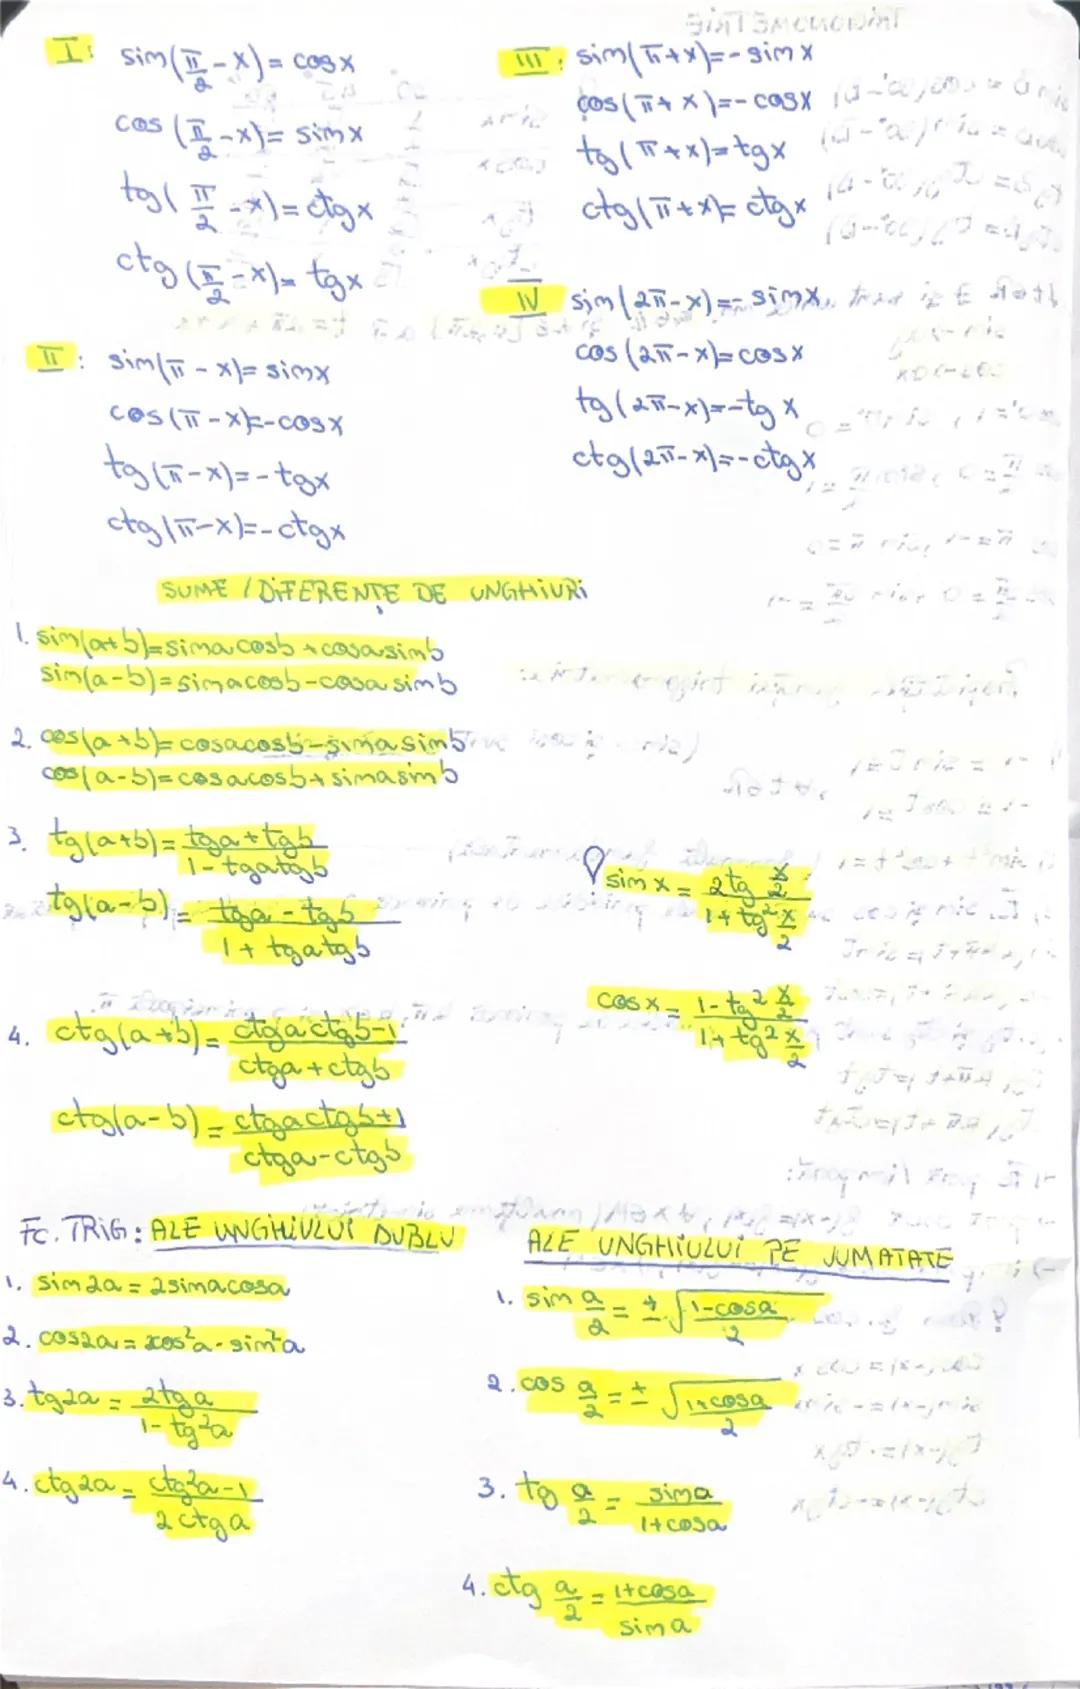 I: sin(π/2 - x) = cos x
cos(π/2 - x) = sin x
tg(π/2 - x) = ctg x
ctg(π/2 - x) = tg x
II: sin(π - x) = sin x
cos(π - x) = -cos x
tg(π - x) = -tg x
ctg(π - x) = -ctg x
III: sin(π + x) = -sin x
cos(π + x) = -cos x
tg(π + x) = tg x
ctg(π + x) = ctg x
IV sin(2π - x) = -sin x
cos(2π - x) = cos x
tg(2π - x) = -tg x
ctg(2π - x) = -ctg x
SUME / DIFERENȚE DE UNGHIURI
1. sin(a+b) = sina cosb + cosa sinb
sin(a-b) = sina cosb - cosa sinb
2. cos(a+b) = cosa cosb - sina sinb
cos(a-b) = cosa cosb + sina sinb
3. tg(a+b) = (tga + tgb)/(1 - tga tgb)
tg(a-b) = (tga - tgb)/(1 + tga tgb)
4. ctg(a+b) = (ctga ctgb - 1)/(ctga + ctgb)
ctg(a-b) = (ctga ctgb + 1)/(ctga - ctgb)
sin x = (2 tg x/2)/(1 + tg² x/2)
cos x = (1 - tg² x/2)/(1 + tg² x/2)
FC. TRIG: ALE UNGHIULUI DUBLU
1. sin 2a = 2 sina cosa
2. cos 2a = cos²a - sin²a
3. tg 2a = 2tg a/(1 - tg²a)
4. ctg 2a = (ctg²a - 1)/(2 ctg a)
ALE UNGHIULUI PE JUMATATE
1. sin a/2 = ± √((1 - cosa)/2)
2. cos a/2 = ± √((1 + cosa)/2)
3. tg a/2 = sina/(1 + cosa)
4. ctg a/2 = (1 + cosa)/sin a